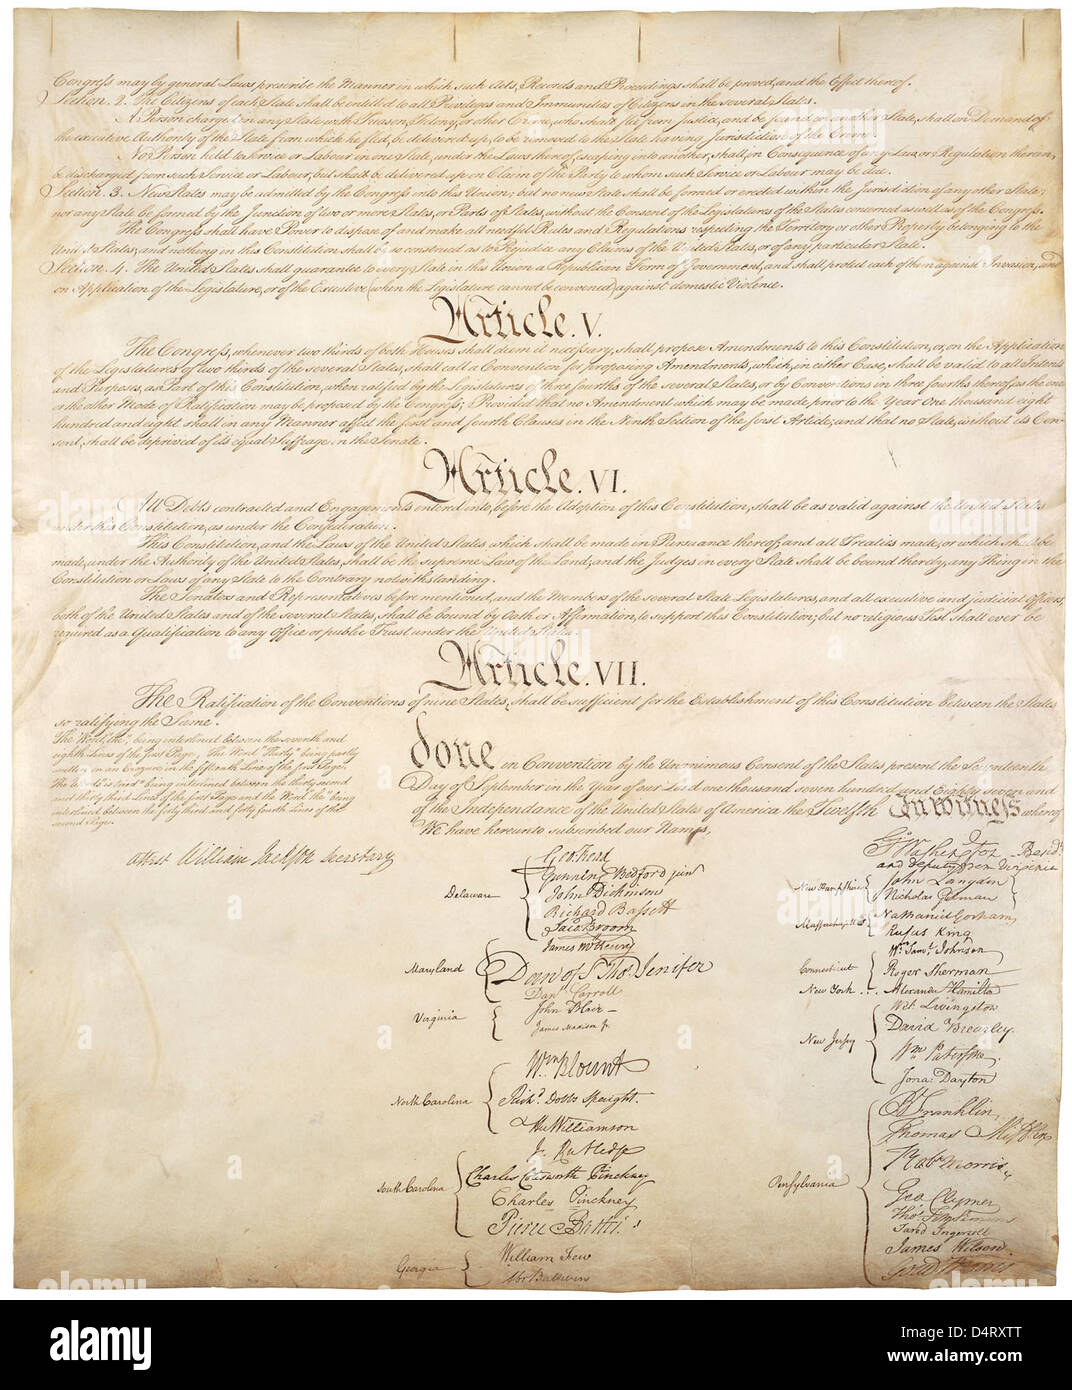 Congress may by general Laws prescribe the Manner in which such Acts, Records and Proceedings shall be proved, and the Effect thereof.
Section. 2. The Citizens of each State shall be entitled to all Privileges and Immunities of Citizens in the several States.
A Person charged in any State with Treason, Felony, or other Crime, who shall flee from Justice, and be found in another State, shall on Demand of
the executive Authority of the State from which he fled, be delivered up, to be removed to the State having Jurisdiction of the Crime.
No Person held to Service or Labour in one State, under the Laws thereof, escaping into another, shall, in Consequence of any Law or Regulation therein,
be discharged from such Service or Labour, but shall be delivered up on Claim of the Party to whom such Service or Labour may be due.
Section. 3. New States may be admitted by the Congress into this Union; but no new State shall be formed or erected within the Jurisdiction of any other State;
nor any State be formed by the Junction of two or more States, or Parts of States, without the Consent of the Legislatures of the States concerned as well as of the Congress.
The Congress shall have Power to dispose of and make all needful Rules and Regulations respecting the Territory or other Property belonging to the
United States; and nothing in this Constitution shall be so construed as to Prejudice any Claims of the United States, or of any particular State.
Section. 4. The United States shall guarantee to every State in this Union a Republican Form of Government, and shall protect each of them against Invasion; and
on Application of the Legislature, or of the Executive (when the Legislature cannot be convened) against domestic Violence.
Article. V.
The Congress, whenever two thirds of both Houses shall deem it necessary, shall propose Amendments to this Constitution, or, on the Application
of the Legislatures of two thirds of the several States, shall call a Convention for proposing Amendments, which, in either Case, shall be valid to all Intents
and Purposes, as Part of this Constitution, when ratified by the Legislatures of three fourths of the several States, or by Conventions in three fourths thereof, as the one
or the other Mode of Ratification may be proposed by the Congress; Provided that no Amendment which may be made prior to the Year One thousand eight
hundred and eight shall in any Manner affect the first and fourth Clauses in the Ninth Section of the first Article; and that no State, without its Con-
sent, shall be deprived of its equal Suffrage in the Senate.
Article. VI.
All Debts contracted and Engagements entered into, before the Adoption of this Constitution, shall be as valid against the United States
under this Constitution, as under the Confederation.
This Constitution, and the Laws of the United States which shall be made in Pursuance thereof; and all Treaties made, or which shall be
made, under the Authority of the United States, shall be the supreme Law of the Land; and the Judges in every State shall be bound thereby, any Thing in the
Constitution or Laws of any State to the Contrary notwithstanding.
The Senators and Representatives before mentioned, and the Members of the several State Legislatures, and all executive and judicial Officers,
both of the United States and of the several States, shall be bound by Oath or Affirmation, to support this Constitution; but no religious Test shall ever be
required as a Qualification to any Office or public Trust under the United States.
Article. VII.
The Ratification of the Conventions of nine States, shall be sufficient for the Establishment of this Constitution between the States
so ratifying the Same.
The Word, "the," being interlined between the seventh and
eighth Lines of the first Page, The Word "Thirty" being partly
written on an Erazure in the fifteenth Line of the first Page,
The Words "is tried" being interlined between the thirty second
and thirty third Lines of the first Page and the Word "the" being
interlined between the forty third and forty fourth Lines of the
second Page.
Attest William Jackson Secretary
done in Convention by the Unanimous Consent of the States present the Seventeenth
Day of September in the Year of our Lord one thousand seven hundred and Eighty seven and
of the Independance of the United States of America the Twelfth In witness whereof
We have hereunto subscribed our Names,
Delaware
Geo: Read
Gunning Bedford jun
John Dickinson
Richard Bassett
Jaco: Broom
Maryland
James McHenry
Dan of St Thos. Jenifer
Danl Carroll
Virginia
John Blair—
James Madison Jr.
North Carolina
Wm Blount
Richd. Dobbs Spaight.
Hu Williamson
South Carolina
J. Rutledge
Charles Cotesworth Pinckney
Charles Pinckney
Pierce Butler.
Georgia
William Few
Abr Baldwin
Go Washington Presidt
and deputy from Virginia
New Hampshire
John Langdon
Nicholas Gilman
Massachusetts
Nathaniel Gorham
Rufus King
Connecticut
Wm Saml Johnson
Roger Sherman
New York . . . Alexander Hamilton
New Jersey
Wil: Livingston
David Brearley.
Wm Paterson.
Jona: Dayton
Pensylvania
B Franklin
Thomas Mifflin
Robt Morris
Geo. Clymer
Thos. FitzSimons
Jared Ingersoll
James Wilson.
Gouv Morris
alamy
a
alamy
www.alamy.com
Image ID: D4RXTT